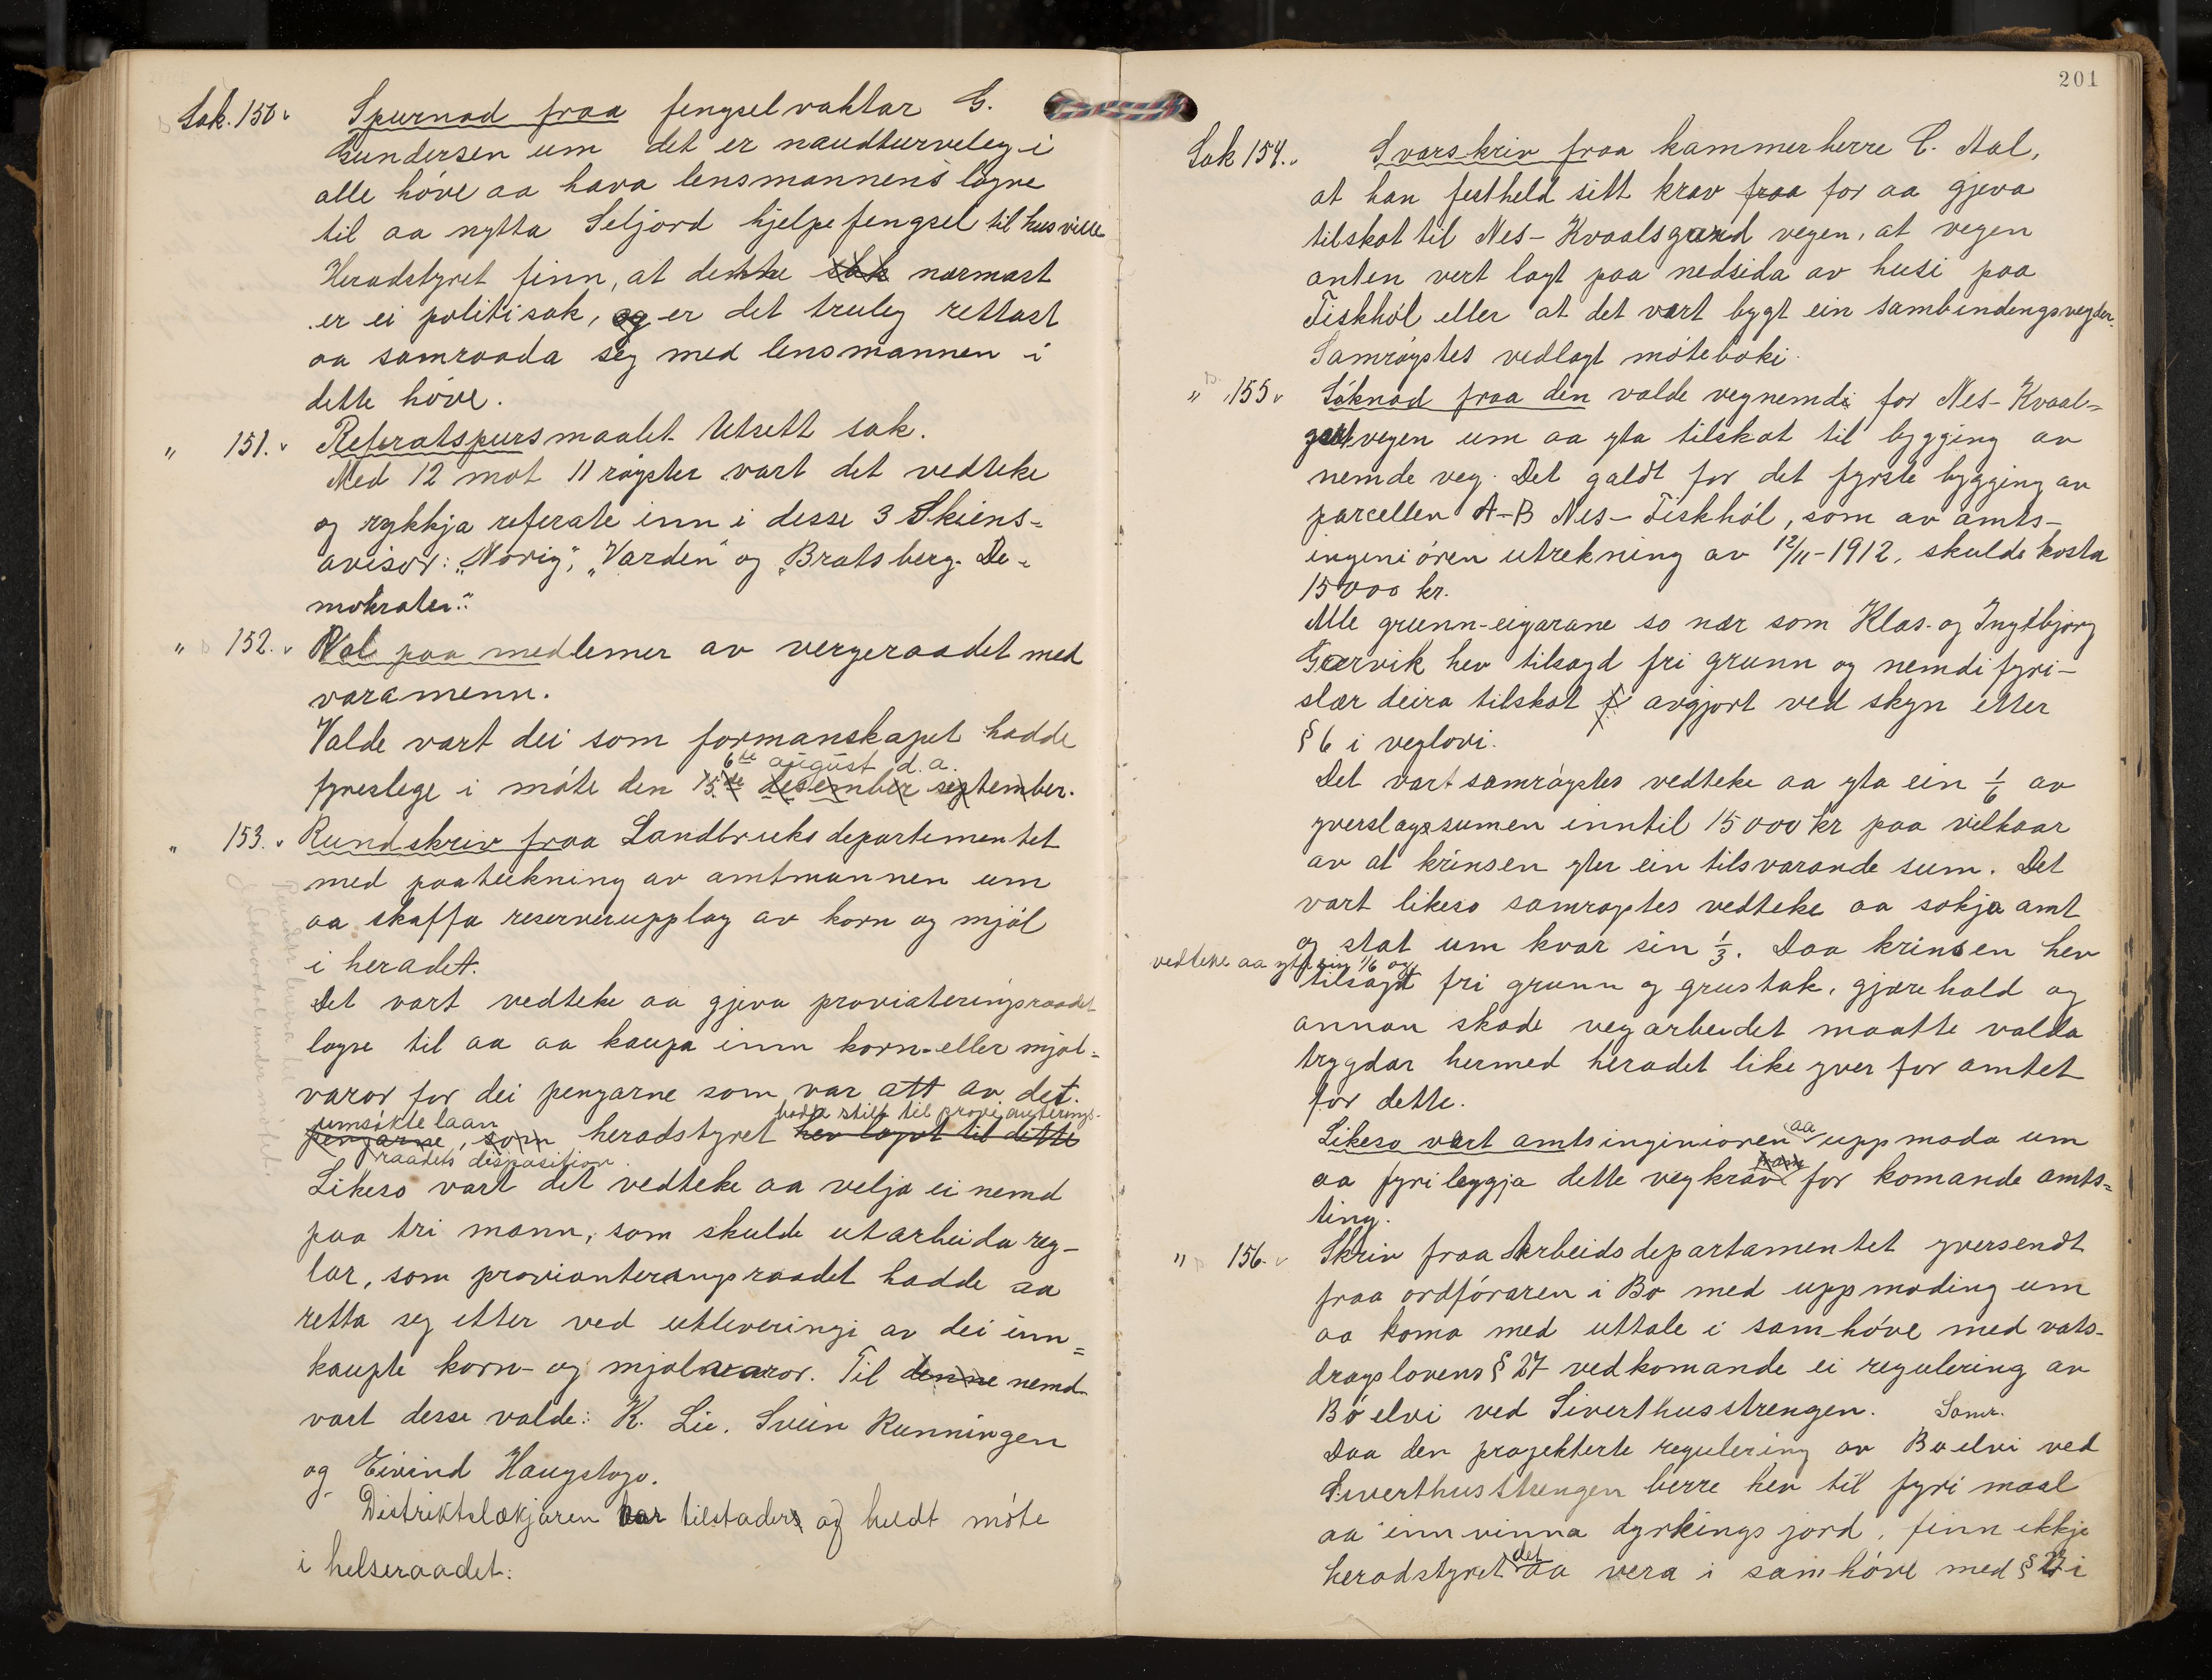 Sak. 150. Spurnad fraa fengselvaktar G.
Gundersen um det er naudturveleg i
alle høve aa hava lensmannens løgve
til aa nytta Seljord hjelpefengsel til husville
Heradstyret finn, at denne sak nærmast
er ei politisak, og er det truleg rettast
aa samraada seg med lensmannen i
dette høve.
" 151. Referatspursmaalet. Utsett sak.
Med 12 mot 11 røyster vart det vedteke
og rykkja referate inn i desse 3 Skiens-
avisor: „Norig", „Varden" og „Bratsberg-De-
mokraten".
" 152. Val paa medlemer av vergeraadet med
varamenn.
Valde vart dei som formanskapet hadde
6te august d.a.
fyreslege i møte den 15de desember september.
" 153. Rundskriv fraa Landbruksdepartementet
med paateikning av amtmannen um
aa skaffa reserveupplag av korn og mjøl
i heradet.
Det vart vedteke aa gjeva proviateringsraadet
løgve til aa aa kaupa inn korn- eller mjøl-
varor for dei pengarne som var att av det
umsøkte laan hadde stilt til provianterings-
pengarne, som heradstyret hev løgvt til dette
raadets disposition.
Likeso vart det vedteke aa velja ei nemd
paa tri mann, som skulde utarbeida reg-
lar, som provianteringsraadet hadde aa
retta seg etter ved utleveringi av dei inn-
kaupte korn- og mjølvaror. Til denne nemd
vart desse valde: K. Lie, Svein Runningen
og Eivind Haugstogo.
Distriktslækjaren var tilstades og heldt møte
i helseraadet.
201
Sak 154. Svarskriv fraa kammerherre C. Aal,
at han festheld sitt krav fraa for aa gjeva
tilskot til Nes-Kvaalsgard vegen, at vegen
anten vert lagt paa nedsida av husi paa
Fiskhól eller at det vart bygt ein sambindengsveg der.
Samrøystes vedlagt møteboki.
" 155. Søknad fraa den valde vegnemdi for Nes-Kvaal-
gardvegen um aa yta tilskot til bygging av
nemde veg. Det galdt for det fyrste bygging av
parcellen A-B Nes-Fiskhól, som av amts-
ingeniøren utrekning av 12/11-1912, skulde kosta
15000 kr.
Alle grunn-eigarane so nær som Klas- og Ingebjørg
Garvik hev tilsagd fri grunn og nemdi fyri-
slær deira tilskot avgjort ved skyn etter
§ 6 i veglovi.
Det vart samrøystes vedteke aa yta ein 1/6 av
yverslagssumen inntil 15000 kr paa vilkaar
av at krinsen yter ein tilsvarande sum. Det
vart likeso samrøystes vedteke aa søkja amt
og stat um kvar sin 1/3. Daa krinsen hev
vedteke aa yta sin 1/6 og
tilsagt fri grunn og grustak, gjærehald og
annan skade vegarbeidet maatte valda
trygdar hermed heradet like yver for amtet
for dette.
Likeso vart amtsinginiøren aa uppmoda um
aa fyrileggja dette vegkrav for komande amts-
ting.
" 156. Skriv fraa Arbeidsdepartamentet yversendt
fraa ordføraren i Bø med uppmoding um
aa koma med uttale i samhøve med vats-
dragslovens § 27 vedkomande ei regulering av
Bø elvi ved Siverthusstrengen. Samr.
Daa den projekterte regulering av Bøelvi ved
Siverthusstrengen berre hev til fyri maal
aa innvinna dyrkings jord, finn ikkje
heradstyret det aa vera i samhøve med § 27 i